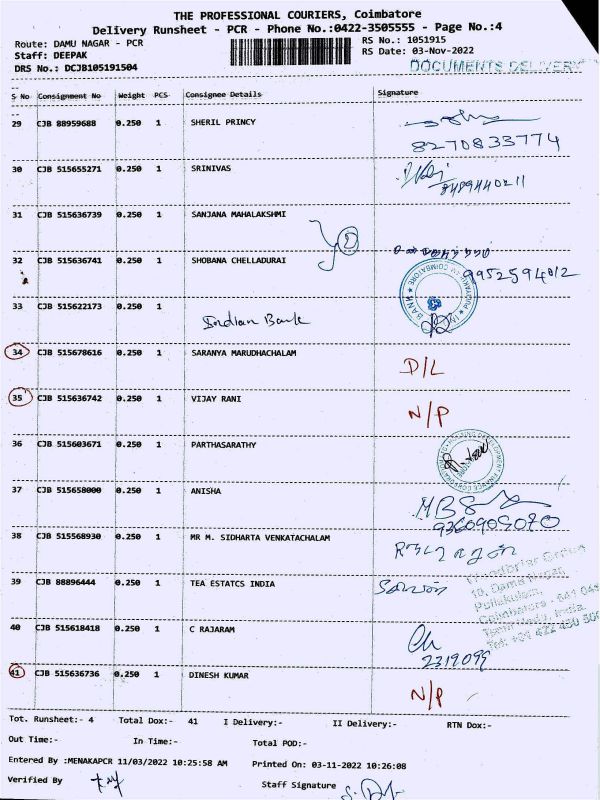 THE PROFESSIONAL COURIERS, Coimbatore
Delivery Runsheet - PCR - Phone No.:0422-3505555 - Page No.:4
Route: DAMU NAGAR - PCR
Staff: DEEPAK
DRS No.: DCJB105191504
RS No.: 1051915
RS Date: 03-Nov-2022
DOCUMENTS DELIVERY
S No Consignment No Weight PCS Consignee Details Signature
29 CJB 88959688 0.250 1 SHERIL PRINCY
8270833774
30 CJB 515655271 0.250 1 SRINIVAS
8489440211
31 CJB 515636739 0.250 1 SANJANA MAHALAKSHMI
32 CJB 515636741 0.250 1 SHOBANA CHELLADURAI
9952594012
33 CJB 515622173 0.250 1
Indian Bank
34 CJB 515678616 0.250 1 SARANYA MARUDHACHALAM D/L
35 CJB 515636742 0.250 1 VIJAY RANI N/P
36 CJB 515603671 0.250 1 PARTHASARATHY
37 CJB 515658000 0.250 1 ANISHA
9360905070
38 CJB 515568930 0.250 1 MR M. SIDHARTA VENKATACHALAM
39 CJB 88896444 0.250 1 TEA ESTATCS INDIA
Woodbriar Group
10, Damu Nagar,
Puliakulam,
Coimbatore - 641 045
Tamilnadu, India.
40 CJB 515618418 0.250 1 C RAJARAM
2319099
41 CJB 515636736 0.250 1 DINESH KUMAR N/P
Tot. Runsheet:- 4 Total Dox:- 41 I Delivery:- II Delivery:- RTN Dox:-
Out Time:- In Time:- Total POD:-
Entered By :MENAKAPCR 11/03/2022 10:25:58 AM Printed On: 03-11-2022 10:26:08
Verified By
Staff Signature